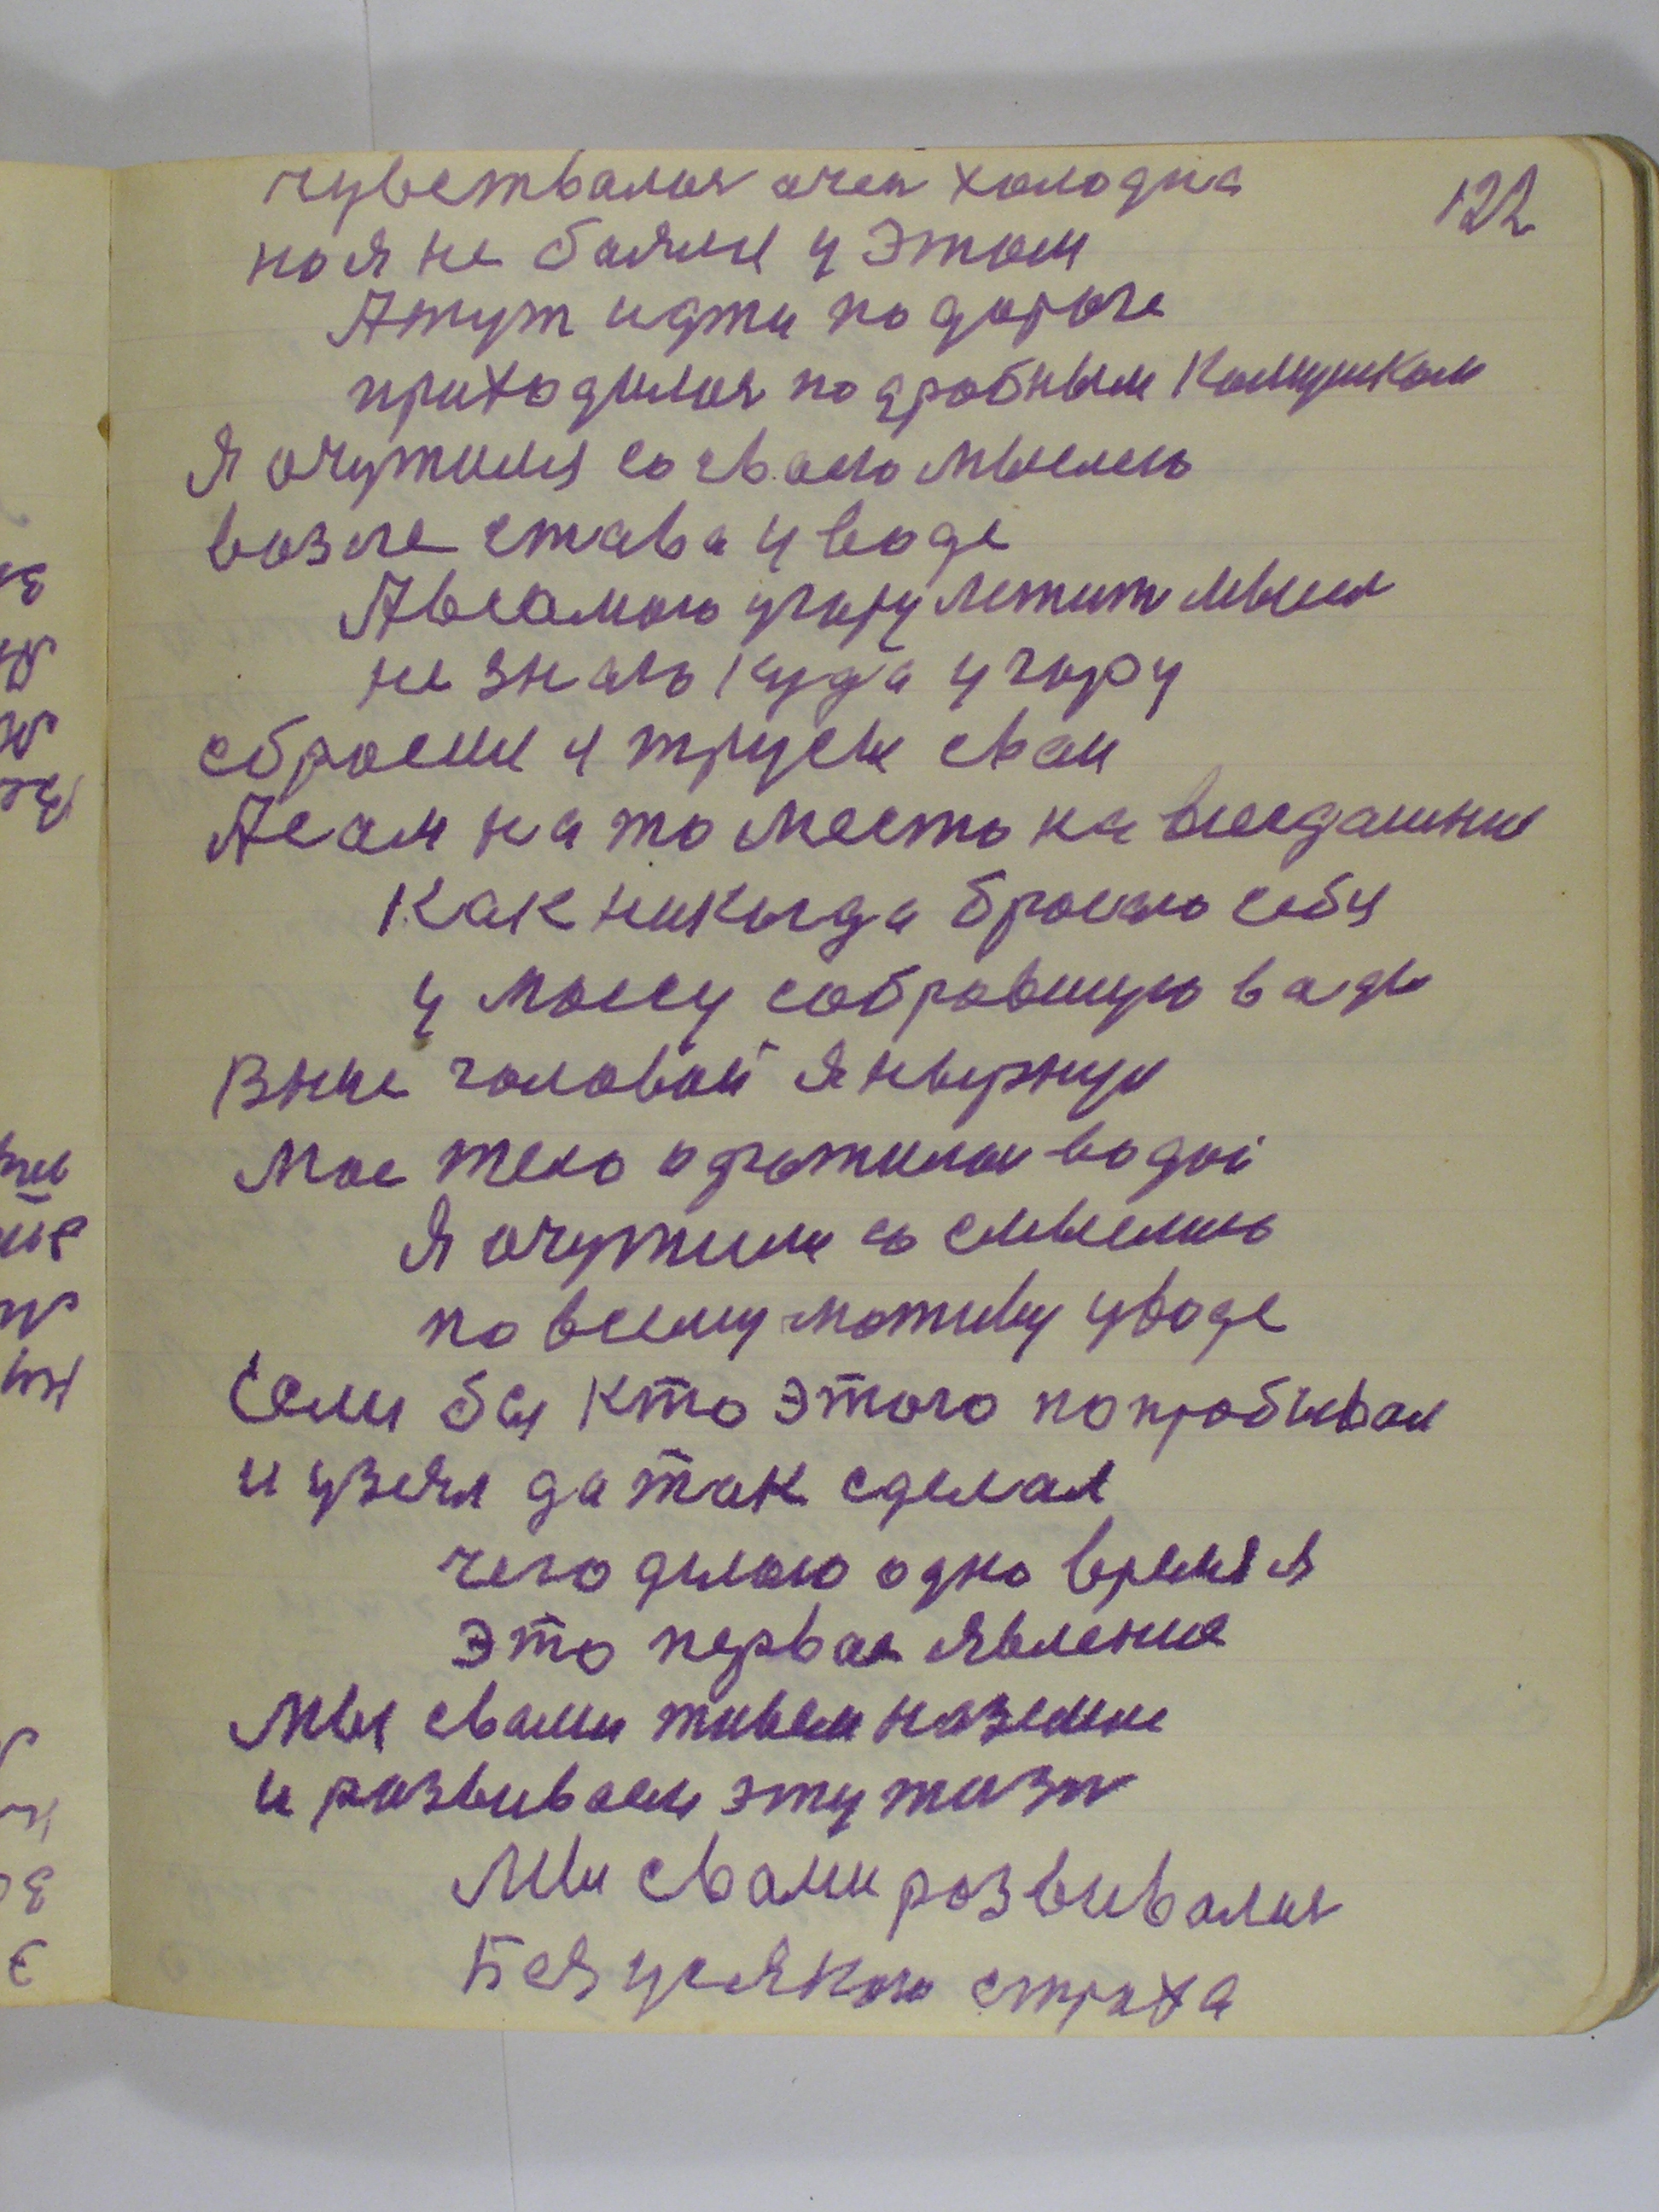 122
чувствалня очен холодна
но я не баялы у этом
А тут идти по дороге
приходилоя по дробным камушкам
Я очутилы со сваею мыслею
возле става у воде
А всамою угору летит мысл
не знаю куда угору
сбросил и трусы сваи
А сам на то место на всегдашние
Как никогда бросаю себя
у массу собравшую вады
Вниз головой я нырнул
Мое тело охватилаи водой
Я очутилы со смыслию
по всему мотиву уводе
Если бы кто этого попробывал
и узял да так сделал
чего делаю одно время я
Это первое явление
Мы свами живем на земли
и развиваем эту жизн
Мы свами розвивалия
Без усякого страха